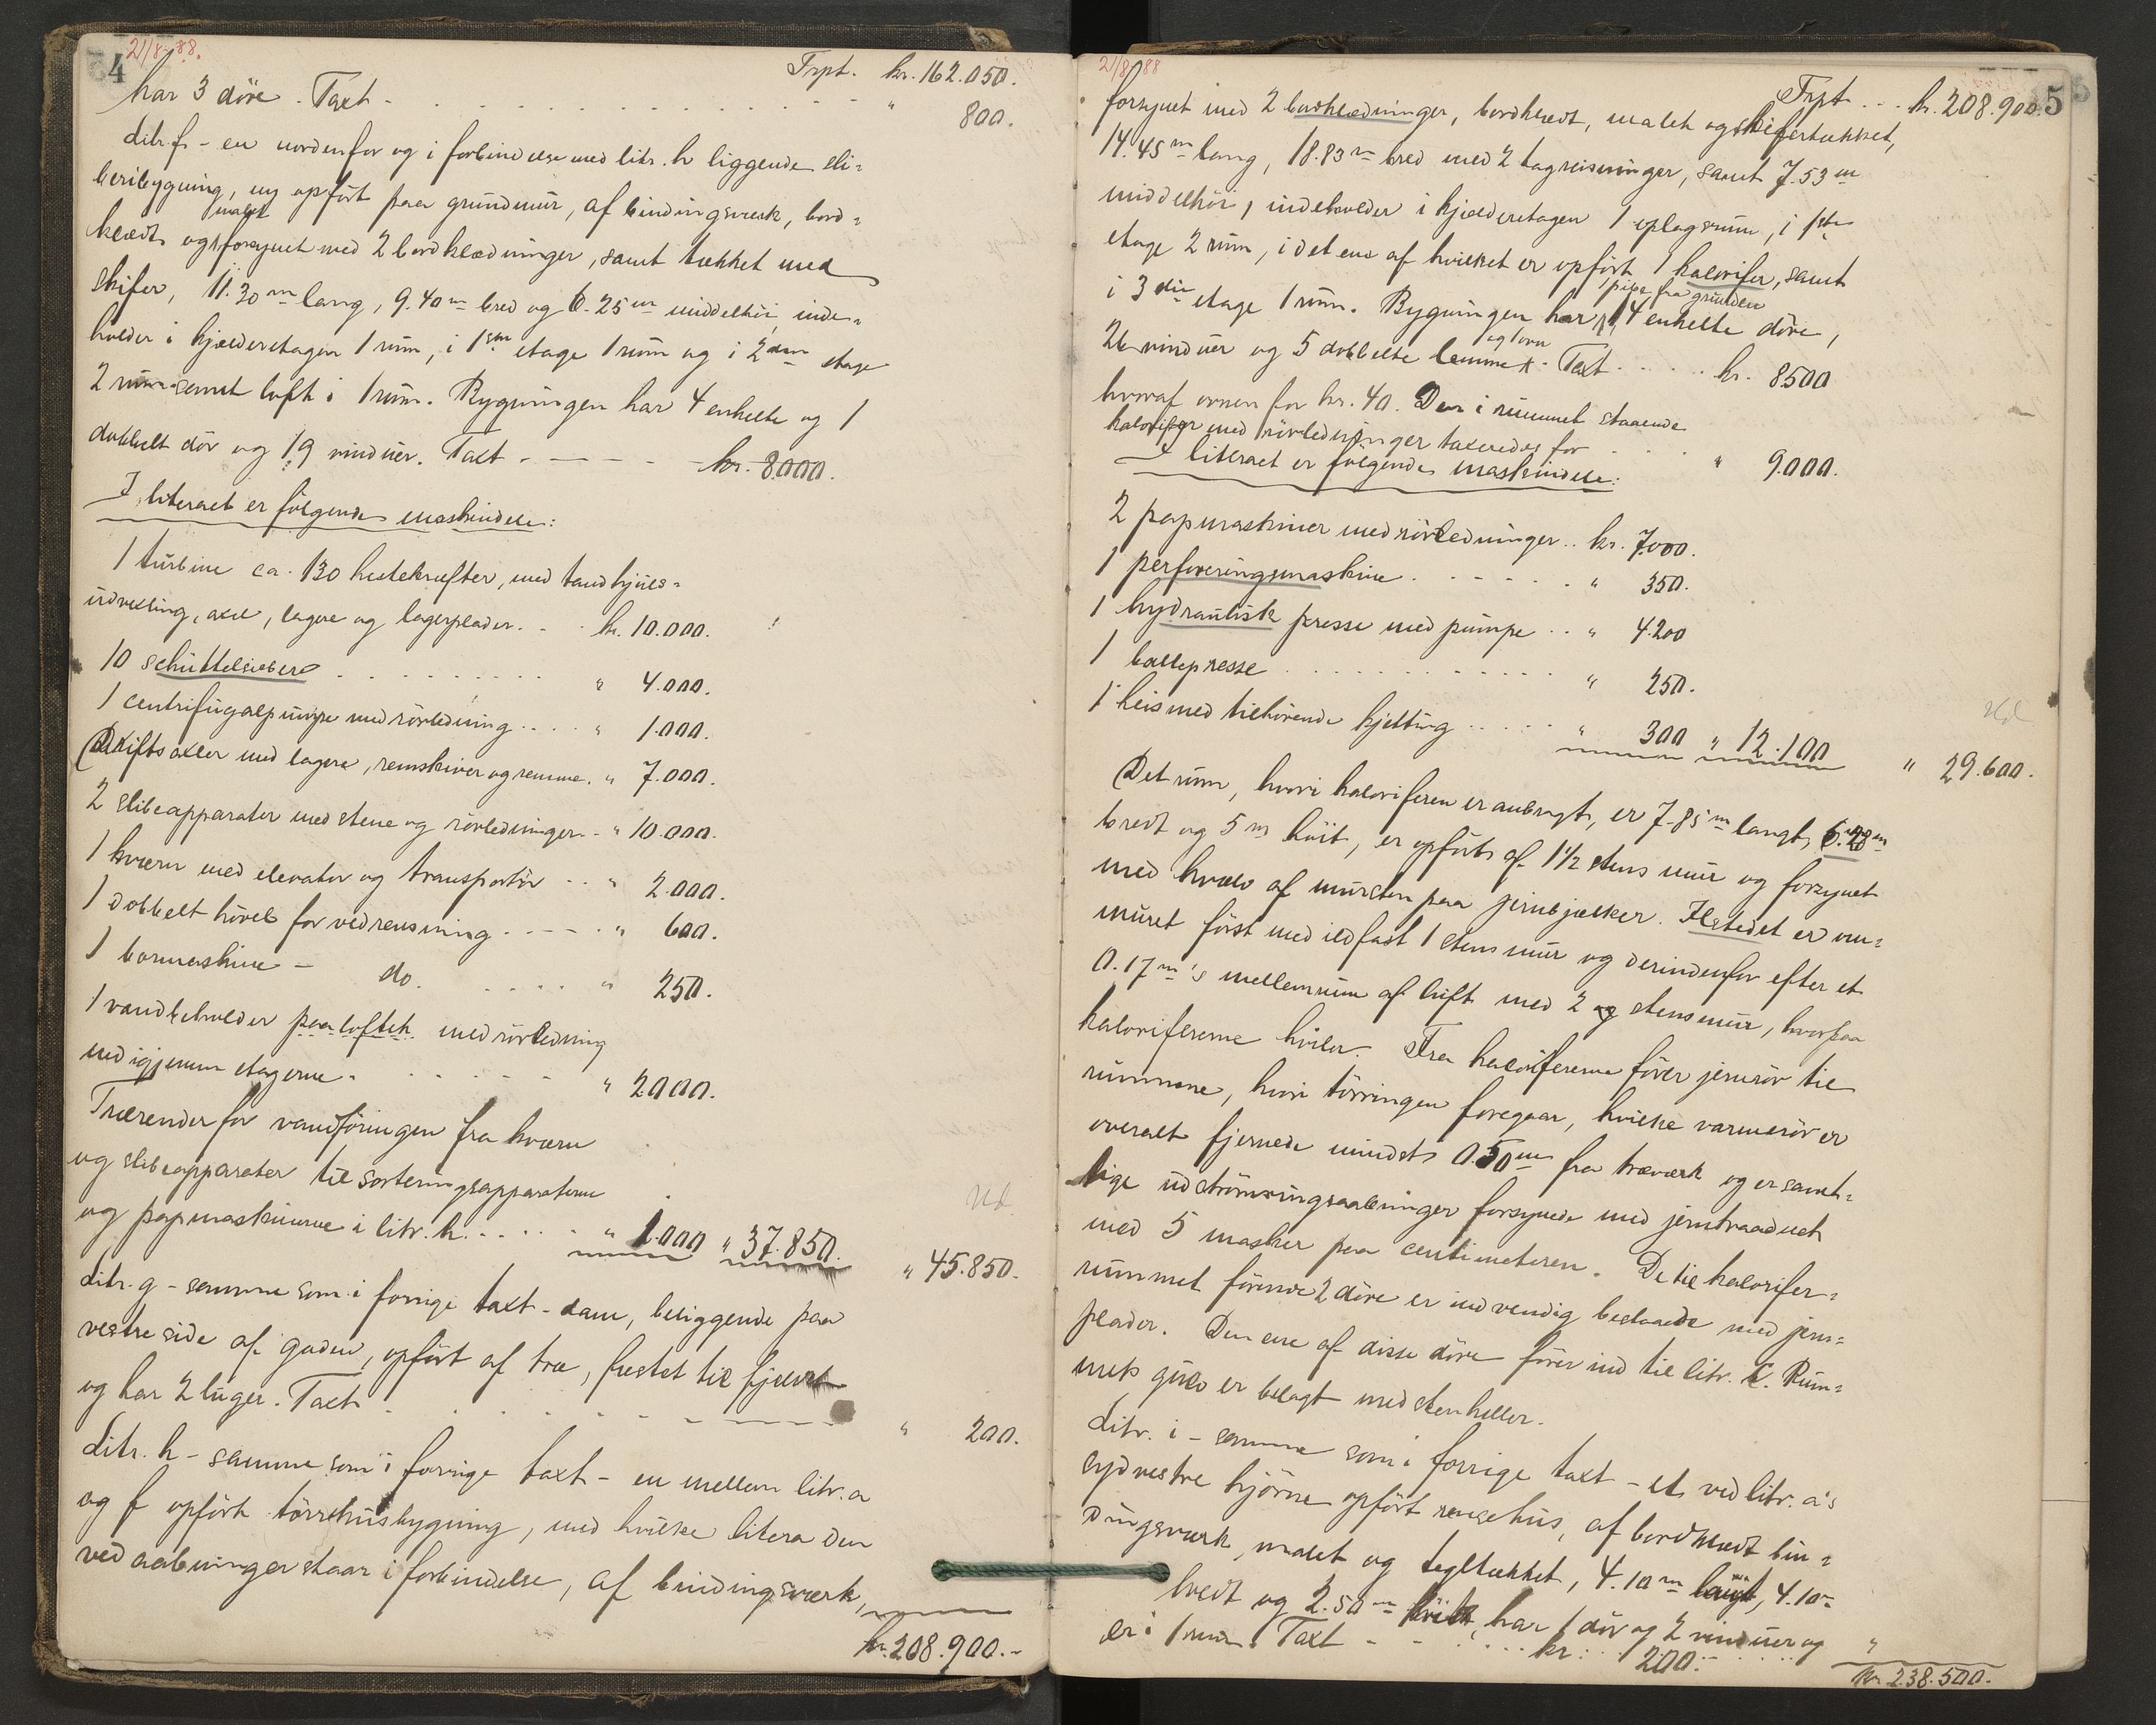 4 21/8-88.
Trpt. kr. 162.050.
har 3 döre. Taxt - . . . . . . . . . . . . " 800.
Litr. f - en nordenfor og i forbindelse med litr. h liggende sli=
beribygning, ny opfört paa grundmur, af bindingsværk, bord=
malt
klædt og forsynet med 2 bordklædninger, samt tækket med
skifer, 11.30 m lang, 9.40 m bred og 6.25 m middelhöi, inde=
holder i kjælderetagen 1 rum, i 1ste etage 1 rum og i 2den etage
2 rum samt loft i 1 rum. Bygningen har 4 enkelte og 1
dobbelt dör og 19 vinduer. Taxt - - - - - kr. 8.000.
I literaet er fölgende maskindele:
1 turbine ca. 130 hestekræfter, med tandhjuls=
udvexling, axel, lagere og lagerplader. . . kr. 10.000.
10 schüttelsiebere . . . . . . . . . " 4.000.
1 centrifugalpumpe med rörledning . . . . " 1.000.
Driftsaxler med lagere, remskiver og remme. " 7.000.
2 slibeapparater med stene og rörledninger. - " 10.000.
1 kværn med elevator og transportör . . " 2.000.
1 dobbelt hövel for vedrensning . - - - . " 600.
1 bormaskine - do. . . . . " 250.
1 vandbeholder paa loftet med rörledning
ned igjennem etagerne . . . . . - " 2000.
Trærender for vandföringen fra kværn
og slibeapparater til sorteringsapparaterne
og papmaskinerne i litr. h. . . . . . " 1.000 " 37.850. " 45.850.
Litr. g - samme som i forrige taxt - dam, beliggende paa
vestre side af gaden, opfört af træ, fæstet til fjeldet
og har 2 luger. Taxt . . . . - - - - - " 200.
Litr. h - samme som i forrige taxt - en mellem litr. a
og f opfört törrehusbygning, med hvilke litera den
ved aabninger staar i forbindelse, af bindingsværk,
kr. 208.900.-
21/8-88 5
Trpt . . . kr. 208.900.
forsynet med 2 bordklædninger, bordklædt, malet og skifertækket,
14.45 m lang, 18.83 m bred med 2 tagreisninger, samt 7.53 m
middelhöi, indeholder i kjælderetagen 1 oplagsrum, i 1ste
etage 2 rum, i det ene af hvilket er opfört 1 kalorifer, samt
pipe fra grunden
i 3die etage 1 rum. Bygningen har 14 enkelte döre,
og ovn
26 vinduer og 5 dobbelte lemme. Taxt . . . . . kr. 8500
hvoraf ovnen for kr. 40. Den i rummet staaende
kalorifer med rörledninger taxeredes for . . . . " 9.000.
I literaet er fölgende maskindele:
2 papmaskiner med rörledninger . . kr. 7.000.
1 perforeringsmaskine . . - - - . . " 350.
1 hydraulisk presse med pumpe . . " 4.200
1 ballepresse . . . . . . . . . . " 250.
1 heis med tilhörende kjetting . . . . . " 300 " 12.100 " 29.600.
Det rum, hvori kaloriferen er anbragt, er 7.85 m langt,
bredt og 5 m höit, er opfört af 1 1/2 stens mur og forsynet
med hvælv af mursten paa jernbjælker. Ilstedet er om=
muret först med ildfast 1 stens mur og derindenfor efter et
0.17 m's mellemrum af luft med 2 stens mur, hvorpaa
kalorifererne hviler. Fra kalorifererne förer jernrör til
rummene, hvori törringen foregaar, hvilke varmerör er
overalt fjernede mindst 0.50 m fra træværk og er samt=
lige udströmningsaabninger forsynede med jerntraadnet
med 5 masker paa centimeteren. De til kalorifer=
rummet förende 2 döre er indvendig beslaaede med jern=
plader. Den ene af disse döre förer ind til litr. k. Rum=
mets gulv er belagt med stenheller.
Litr. i - samme som i forrige taxt - et ved litr. a's
sydvestre hjörne opfört rensehus, af bordklædt bin=
dingsværk, malet og tegltækket, 4.10 m langt, 4.10 m
bredt og 2.50 m höit, har 1 dör og 2 vinduer og
er i 1 rum. Taxt - - . . . . kr. . . 200.- . . . "
kr. 238.500.